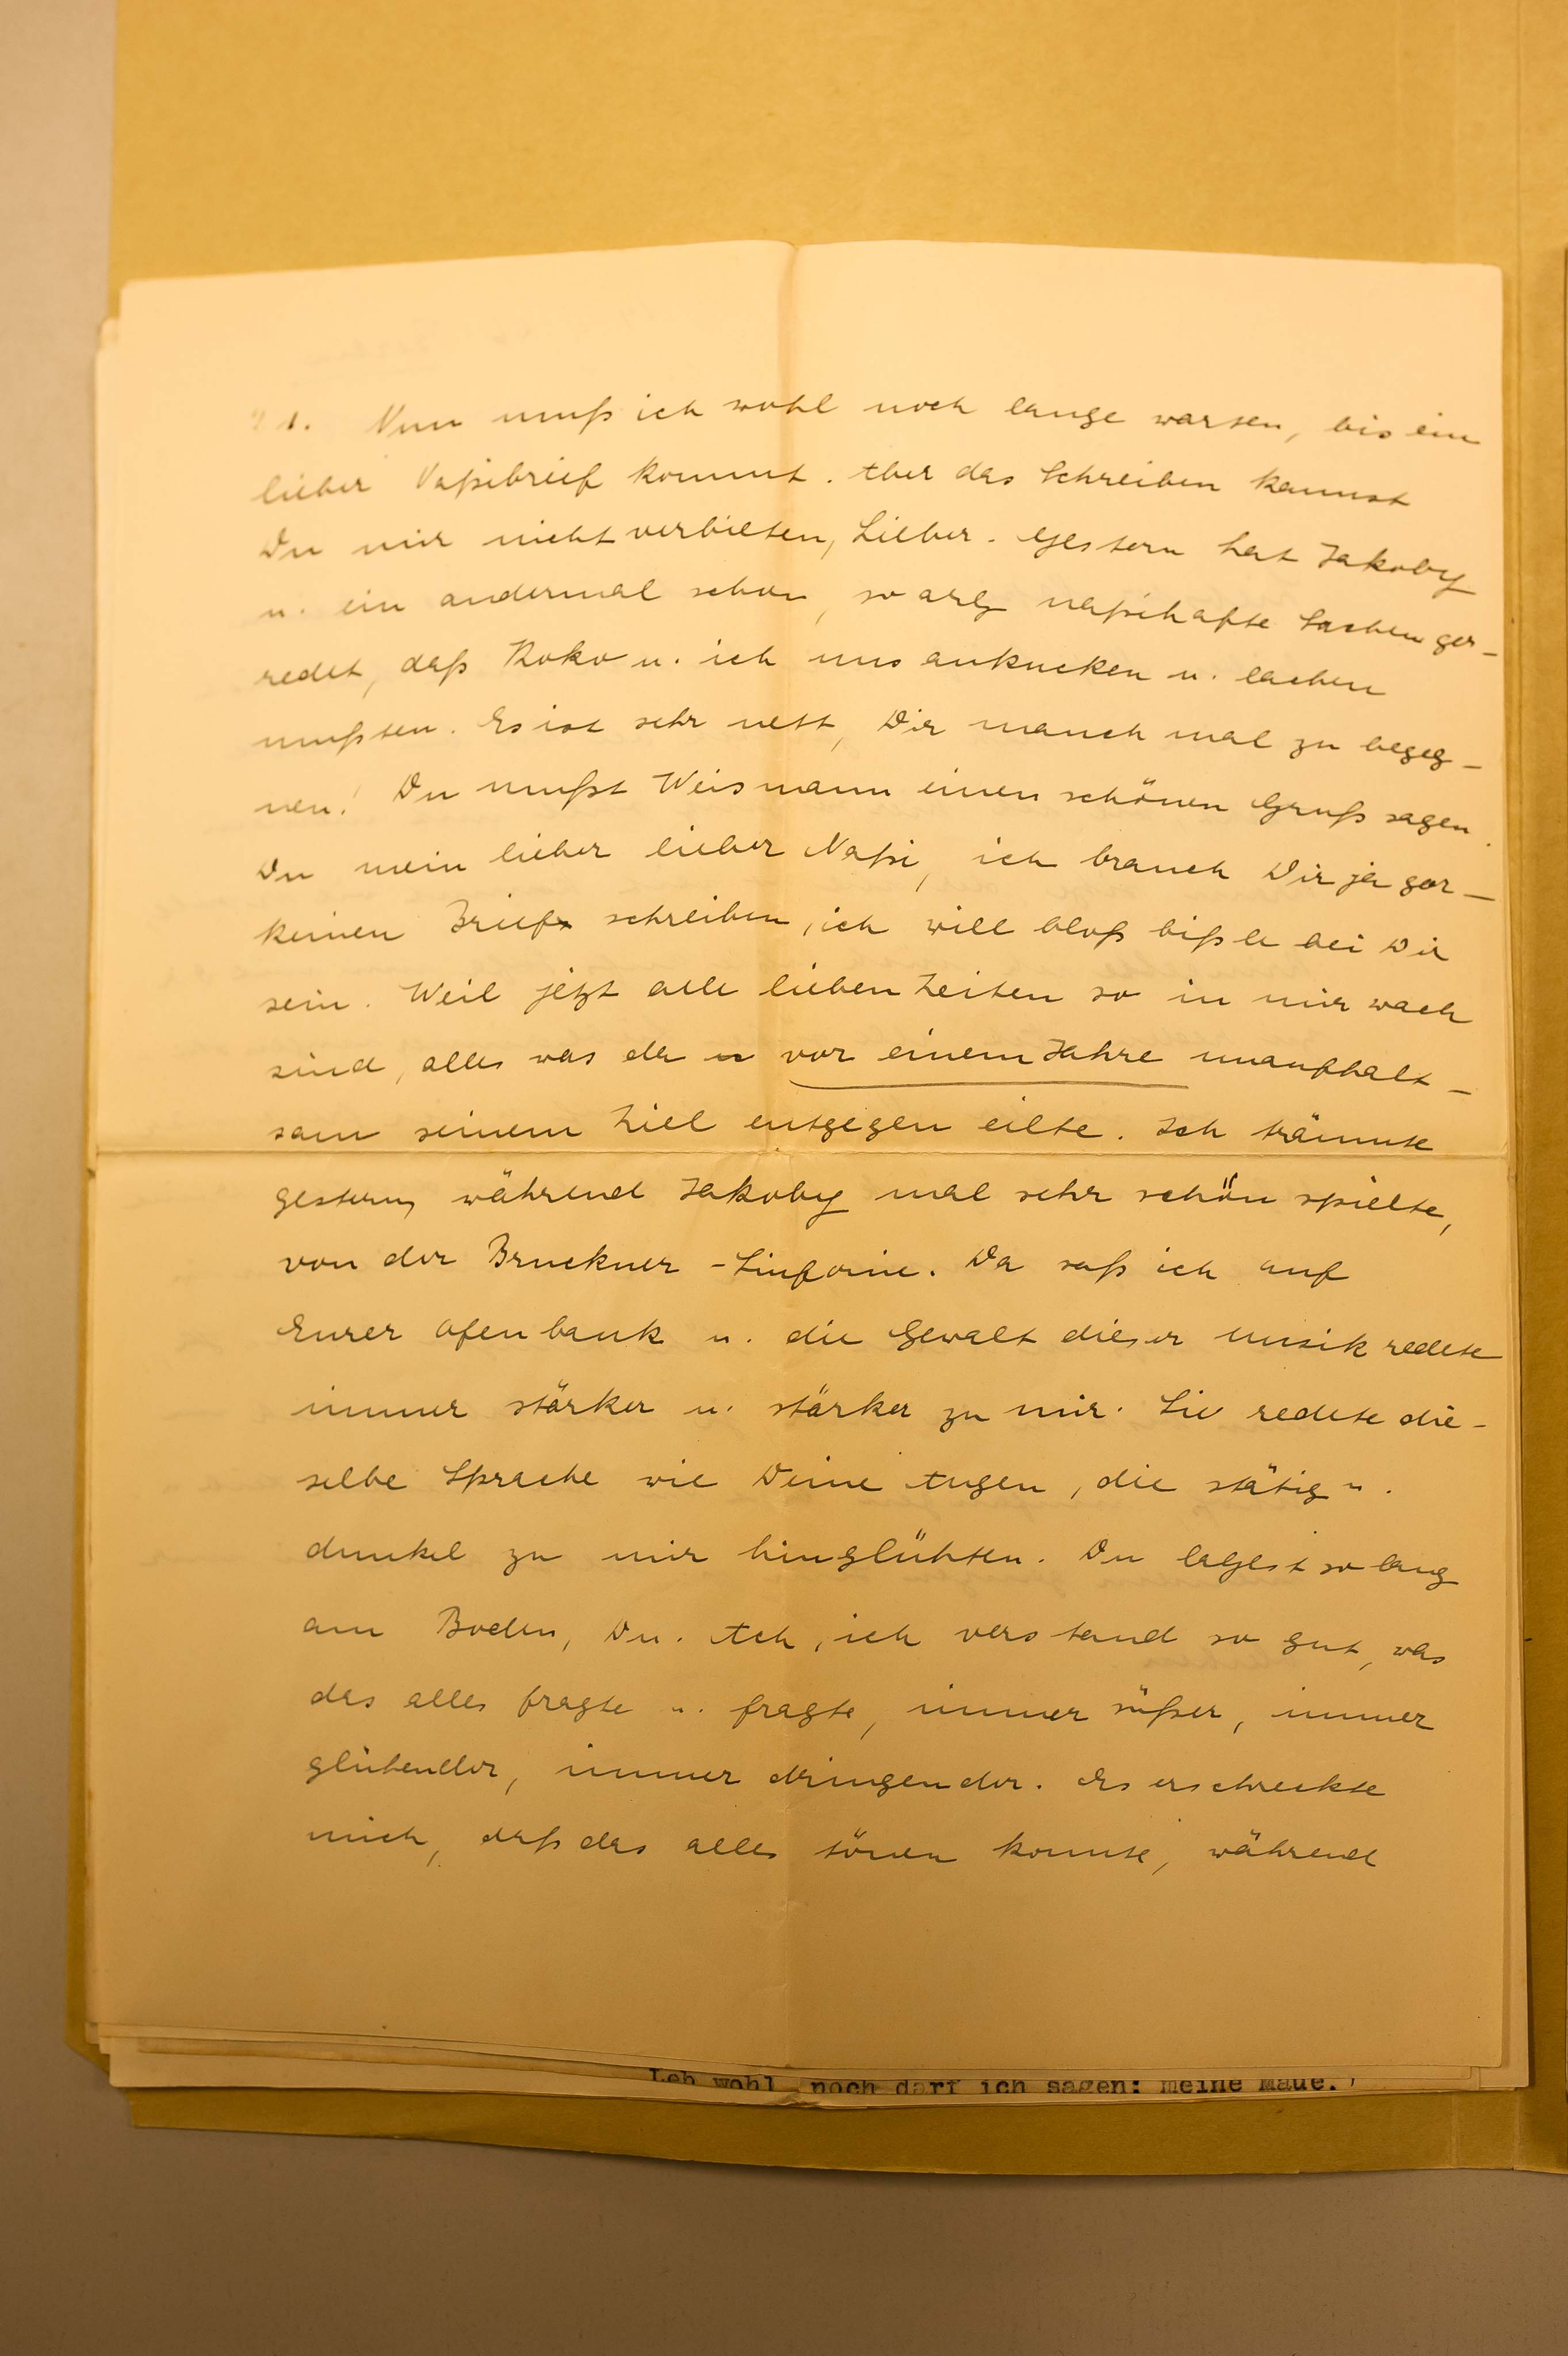 1. Nun muß ich wohl noch lange warten, bis ein
lieber Naßibrief kommt. Aber das Schreiben kannst
Du mir nicht verbieten, Lieber. Gestern hat Jakoby
u. ein andermal schon, so arg naßihafte Sachen ge-
redet, daß Koko u. ich uns ankucken u. lachen
mußten. Es ist sehr nett, Dir manch mal zu begeg-
nen! Du mußt Weismann einen schönen Gruß sagen.
Du mein lieber lieber Naßi, ich brauch Dir ja gar-
keinen Brief schreiben, ich will bloß bißle bei Dir
sein. Weil jetzt alle lieben Zeiten so in mir wach
sind, alles was da vor einem Jahre unaufhalt-
sam seinem Ziel entgegen eilte. Ich träumte
gestern, während Jakoby mal sehr schön spielte,
von der Bruckner-Sinfonie. Da saß ich auf
Eurer Ofenbank u. die Gewalt dieser Musik redete
immer stärker u. stärker zu mir. Sie redete die-
selbe Sprache wie Deine Augen, die stätig u.
dunkel zu mir hinglühten. Du lagest so lang
am Boden, Du. Ach, ich verstand so gut, was
das alles fragte u. fragte, immer süßer, immer
glühender, immer dringender. Es erschreckte
mich, daß das alles tönen konnte, während
Leb wohl, noch darf ich sagen: meine Maue.